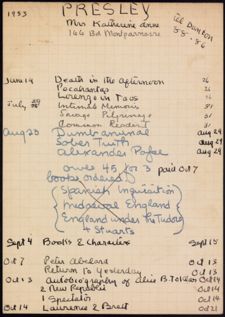 1933
PRESLEY
Mrs Katherine Anne
166 Bd Montparnasse
Tel Danton
55-86
June 19 Death in the Afternoon 26
Pocahontas 26
Lorenzo in Taos 26
July Intimate Memories 31
Savage Pilgrimage 31
Common Reader 31
Aug 23 Dumb animal Aug 29
Sober Truth Aug 29
Alexander Pope Aug 29
owes 45 for 3 paid Oct 7
books ordered
Spanish Inquisition
Mediaeval England
England under the Tudors
& Stuarts
Sept 4 Books & Characters Sept 15
Oct 7 Peter Abelard Oct 13
Return to Yesterday Oct 13
Oct 13 Autobiography of Alice B. Toklas Oct 14
2 New Republic Oct 14
1 Spectator Oct 14
Oct 14 Lawrence & Brett Oct 21